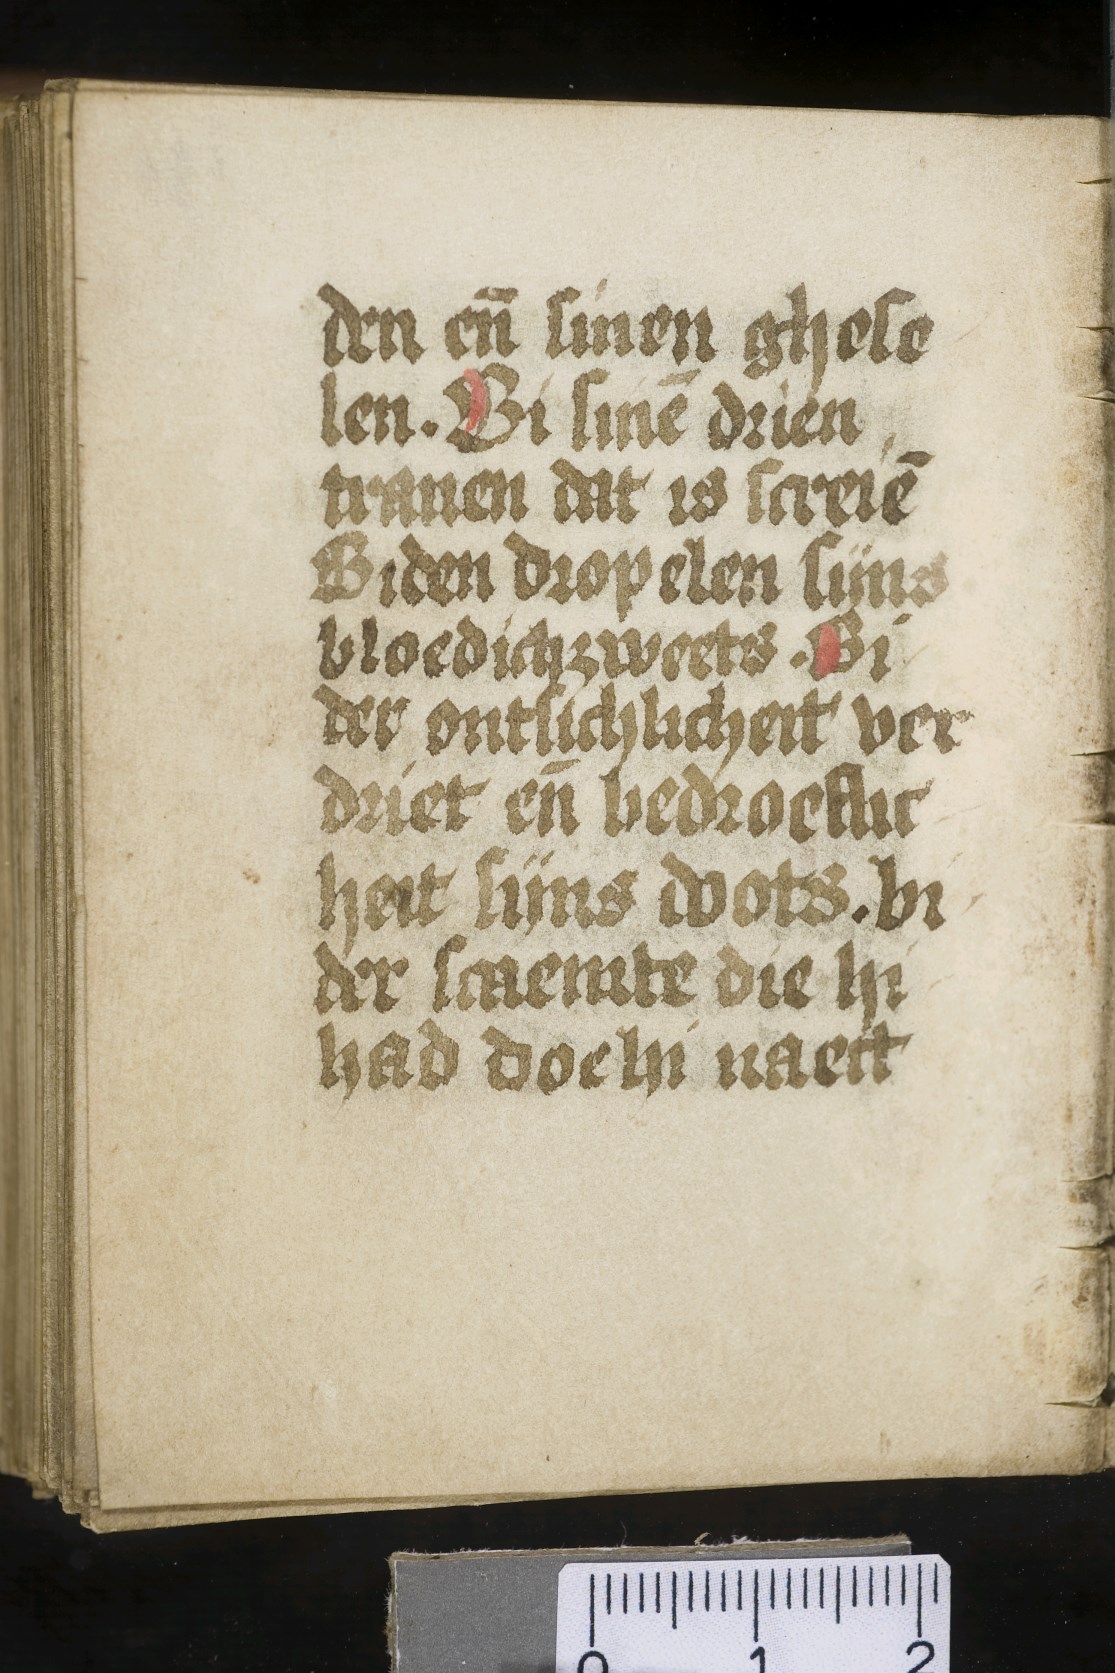 den en̄ sinen ghese
len. Bi sinē drien
tranen dat is screiē
Biden dropelen sijns
bloedichzweets. Bi
der ontsichlicheit ver
driet en̄ bedroeflic
heit sijns doots. bi
der scaemte die hi
had doe hi naect
0 1 2